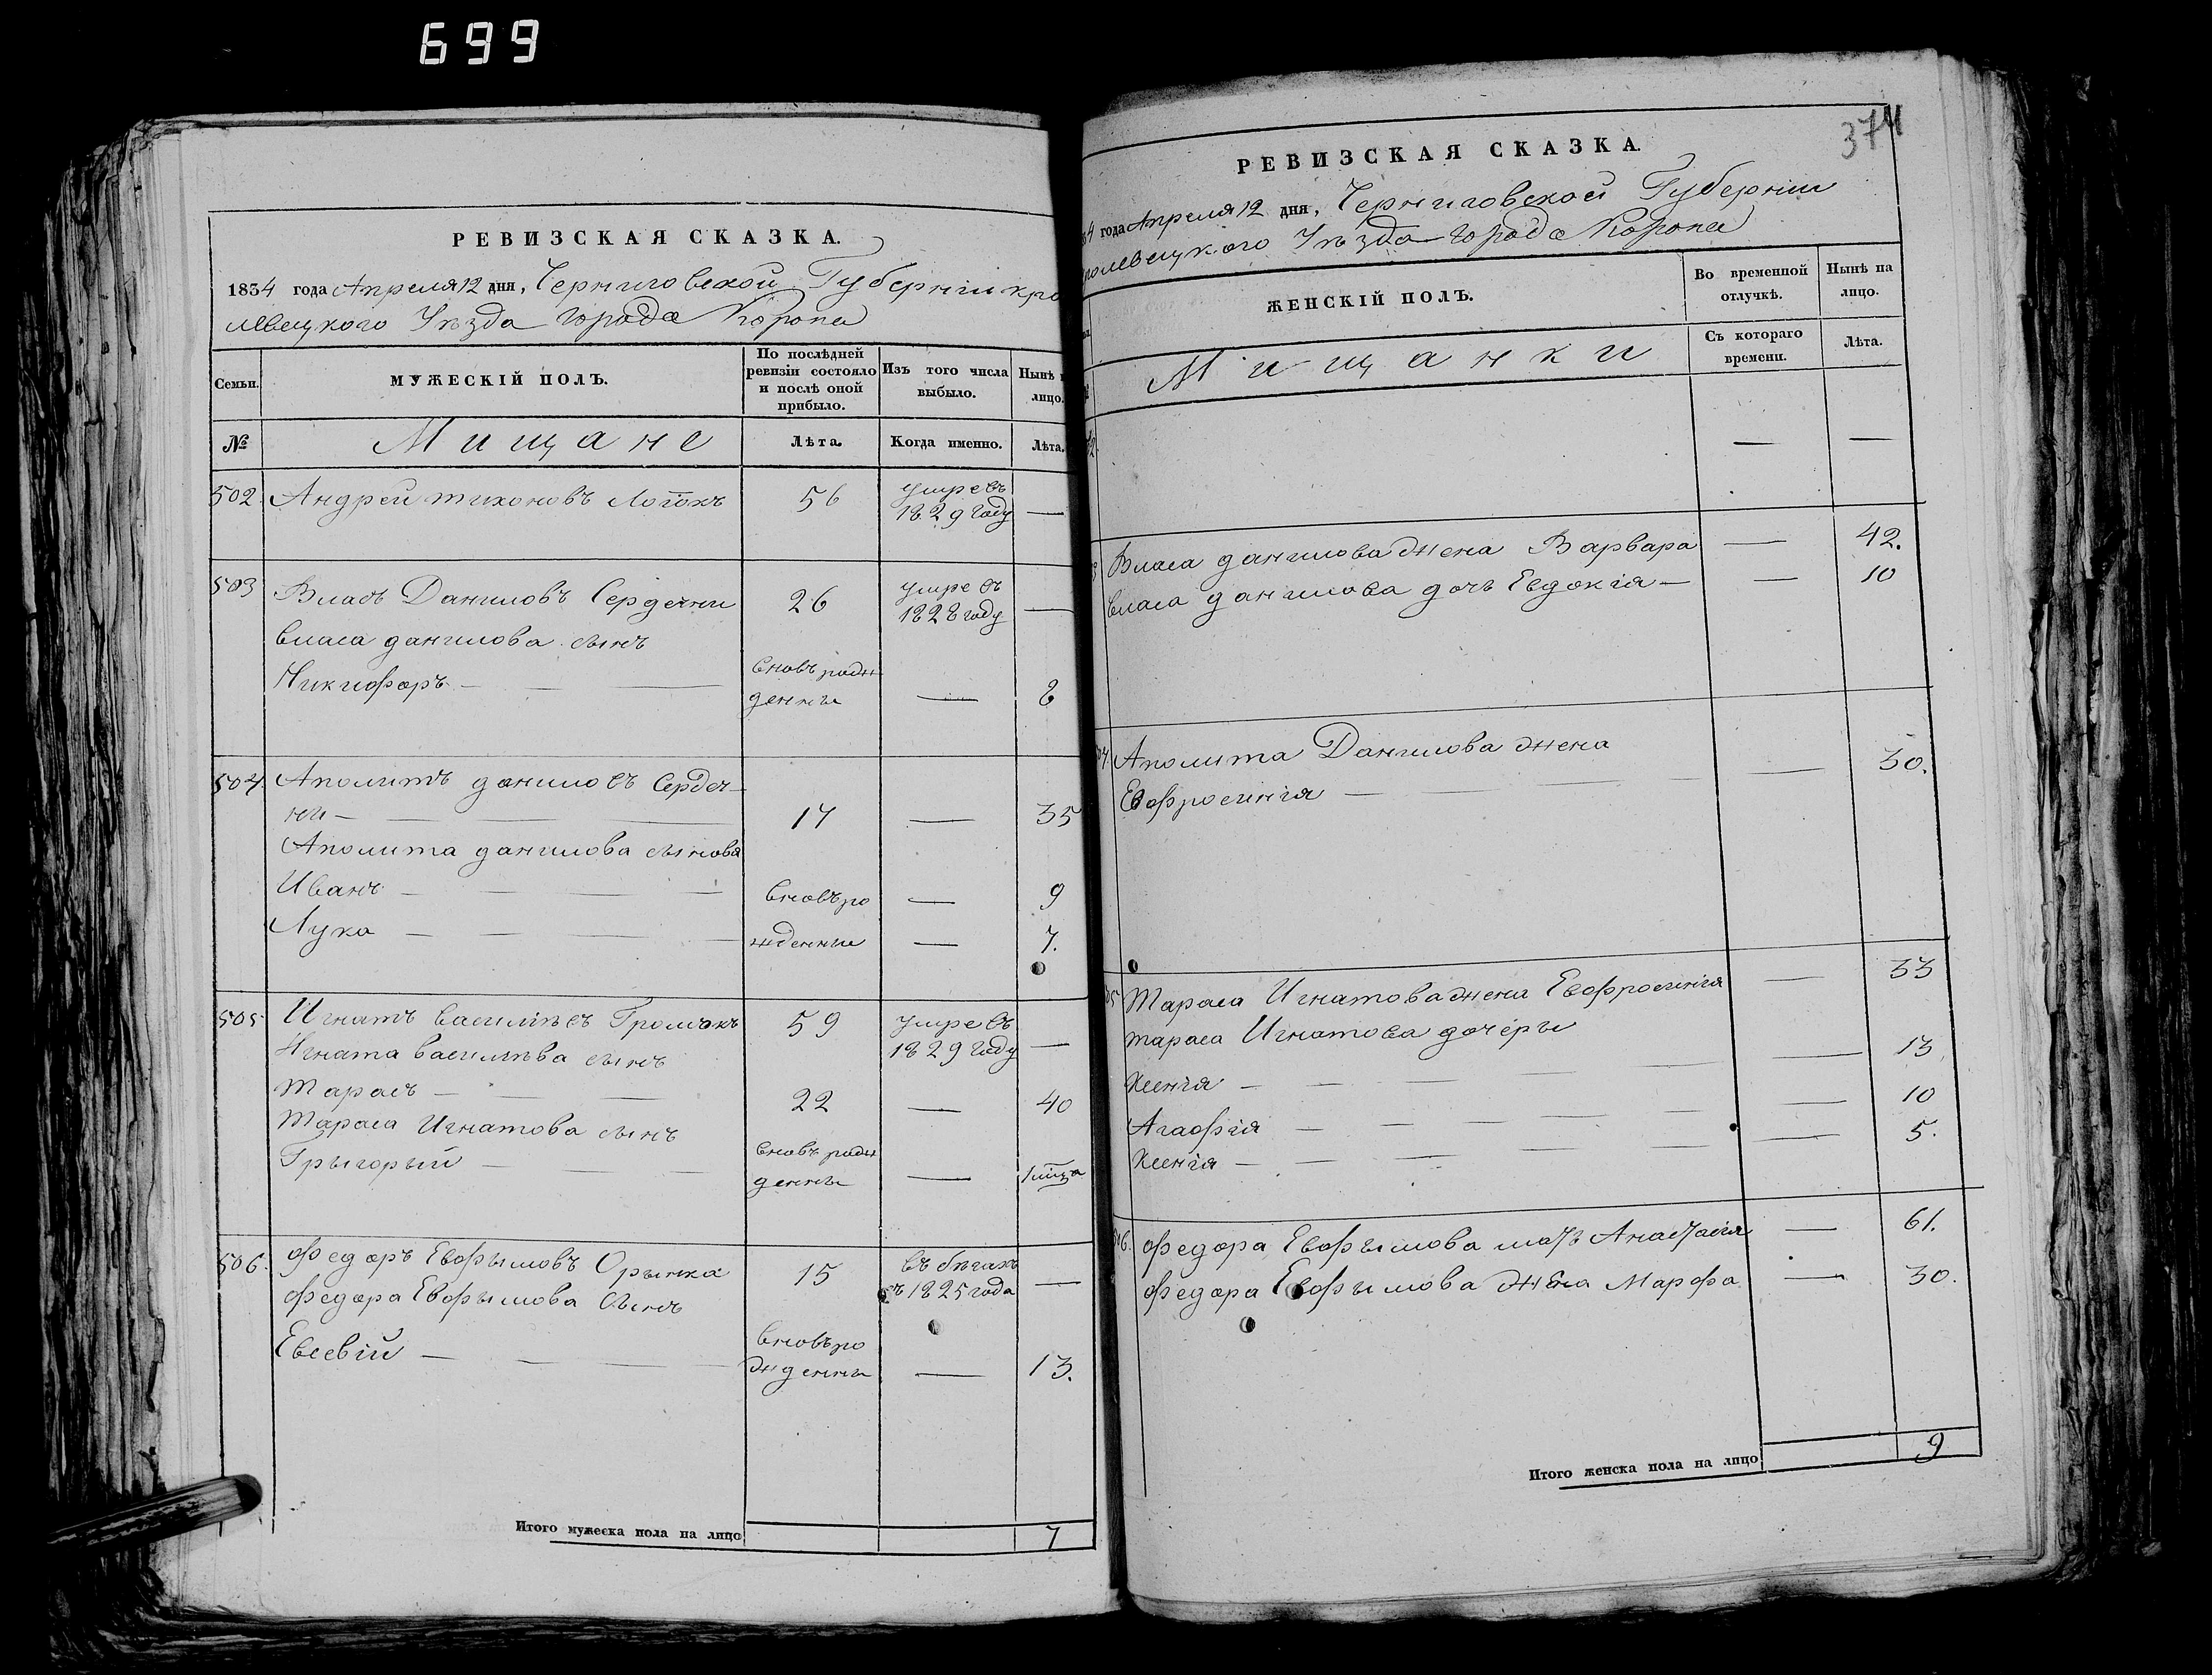 699
РЕВИЗСКАЯ СКАЗКА.
1834 года Апреля 12 дня, Черниговской Губерніи кро
левецкого Уѣзда города Коропа
Семьи.
МУЖЕСКІЙ ПОЛЪ.
По послѣдней
ревизіи состояло
и послѣ оной
прибыло.
Изъ того числа
выбыло.
Нынѣ
лицо.
№
Мищане
Лѣта.
Когда именно.
Лѣта.
502. Андрей тихоновъ 56 умре въ
1829 году —
503 Власъ Даниловъ Сердечни 26 умре въ
1828 году —
власа данилова сынъ
Никифоръ — вновъ рож
денны — 8
504 Аполитъ даниловъ Сердеч
ни — 17 — 35
Аполита данилова сынова
Иванъ — вновъ ро — 9
Лука — жденны — 7.
505 Игнатъ василѣвъ 59 умре въ
1829 году —
Игната василѣва сынъ
Тарасъ — 22 — 40
Тараса Игнатова сынъ
Грыгорый — вновъ рож
денны —
506. федоръ Евфымовъ 15 въ бѣгахъ
съ 1825 года —
федора Евфымова сынъ
Евсевій — вновъ ро
жденны — 13.
Итого мужеска пола на лицо 7
374
РЕВИЗСКАЯ СКАЗКА.
4 года Апреля 12 дня, Черниговской Губерніи
ролевецкого Уѣзда города Коропа
ЖЕНСКІЙ ПОЛЪ.
Во временной
отлучкѣ.
Нынѣ на
лицо.
Мищанки
Съ котораго
времени.
Лѣта.
2. — —
3 Власа данилова жена Варвара — 42.
власа данилова дочъ Евдокія — — 10
04. Аполита Данилова жена
Евфросинія — — 30.
05 Тараса Игнатова жена Евфросинія — 33
тараса Игнатова дочеры
Ксенія — — 13
Агафія — — 10
Ксенія — — 5.
06. федора Евфымова мать Анастасія — 61.
федора Евфымова жена Марфа — 30.
Итого женска пола на лицо 9